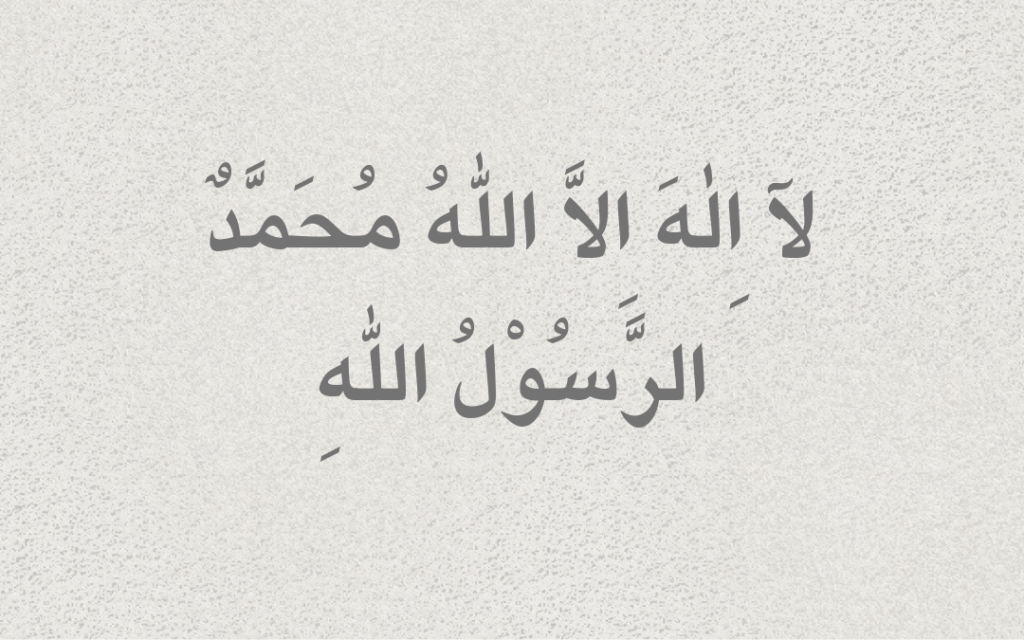 لآ اِلٰهَ الاَّ اللّٰهُ مُحَمَّدٌ
الرََّسُوْلُ اللّٰهِ